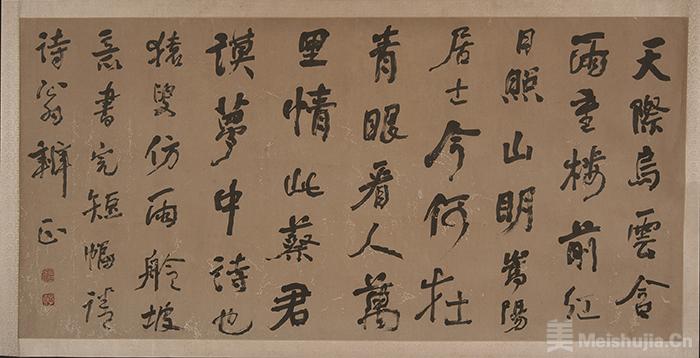 天際烏雲含
雨重樓前紅
日照山明嵩陽
居士今何在
青眼看人萬
里情此蔡君
謨夢中詩也
猿叟仿雨舲坡
意書完短幅請
詩翁辨正
美 Meishujia.Cn